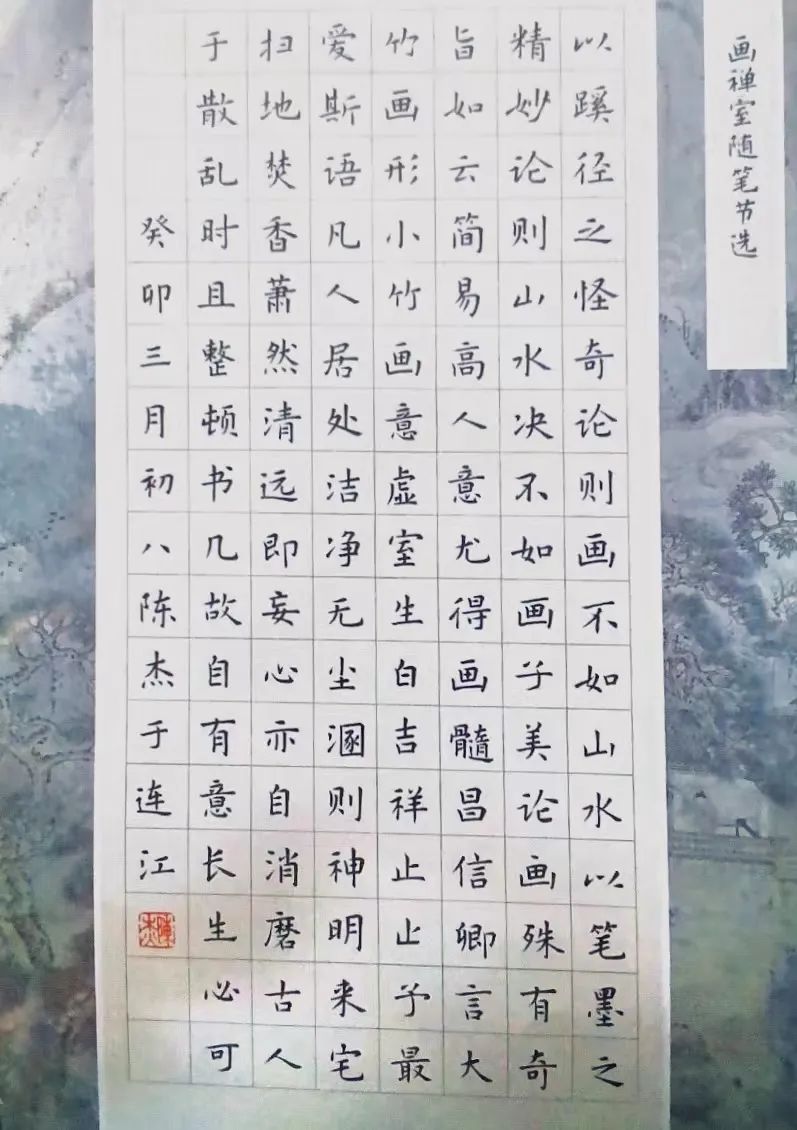 画禅室随笔节选
以蹊径之怪奇论则画不如山水以笔墨之
精妙论则山水决不如画子美论画殊有奇
旨如云简易高人意尤得画髓昌信卿言大
竹画形小竹画意虚室生白吉祥止止予最
爱斯语凡人居处洁净无尘溷则神明来宅
扫地焚香萧然清远即妄心亦自消磨古人
于散乱时且整顿书几故自有意长生必可
癸卯三月初八陈杰于连江
陳杰